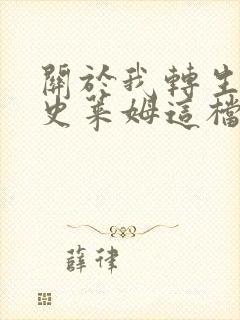 關於我轉生
史萊姆這檔
薛律